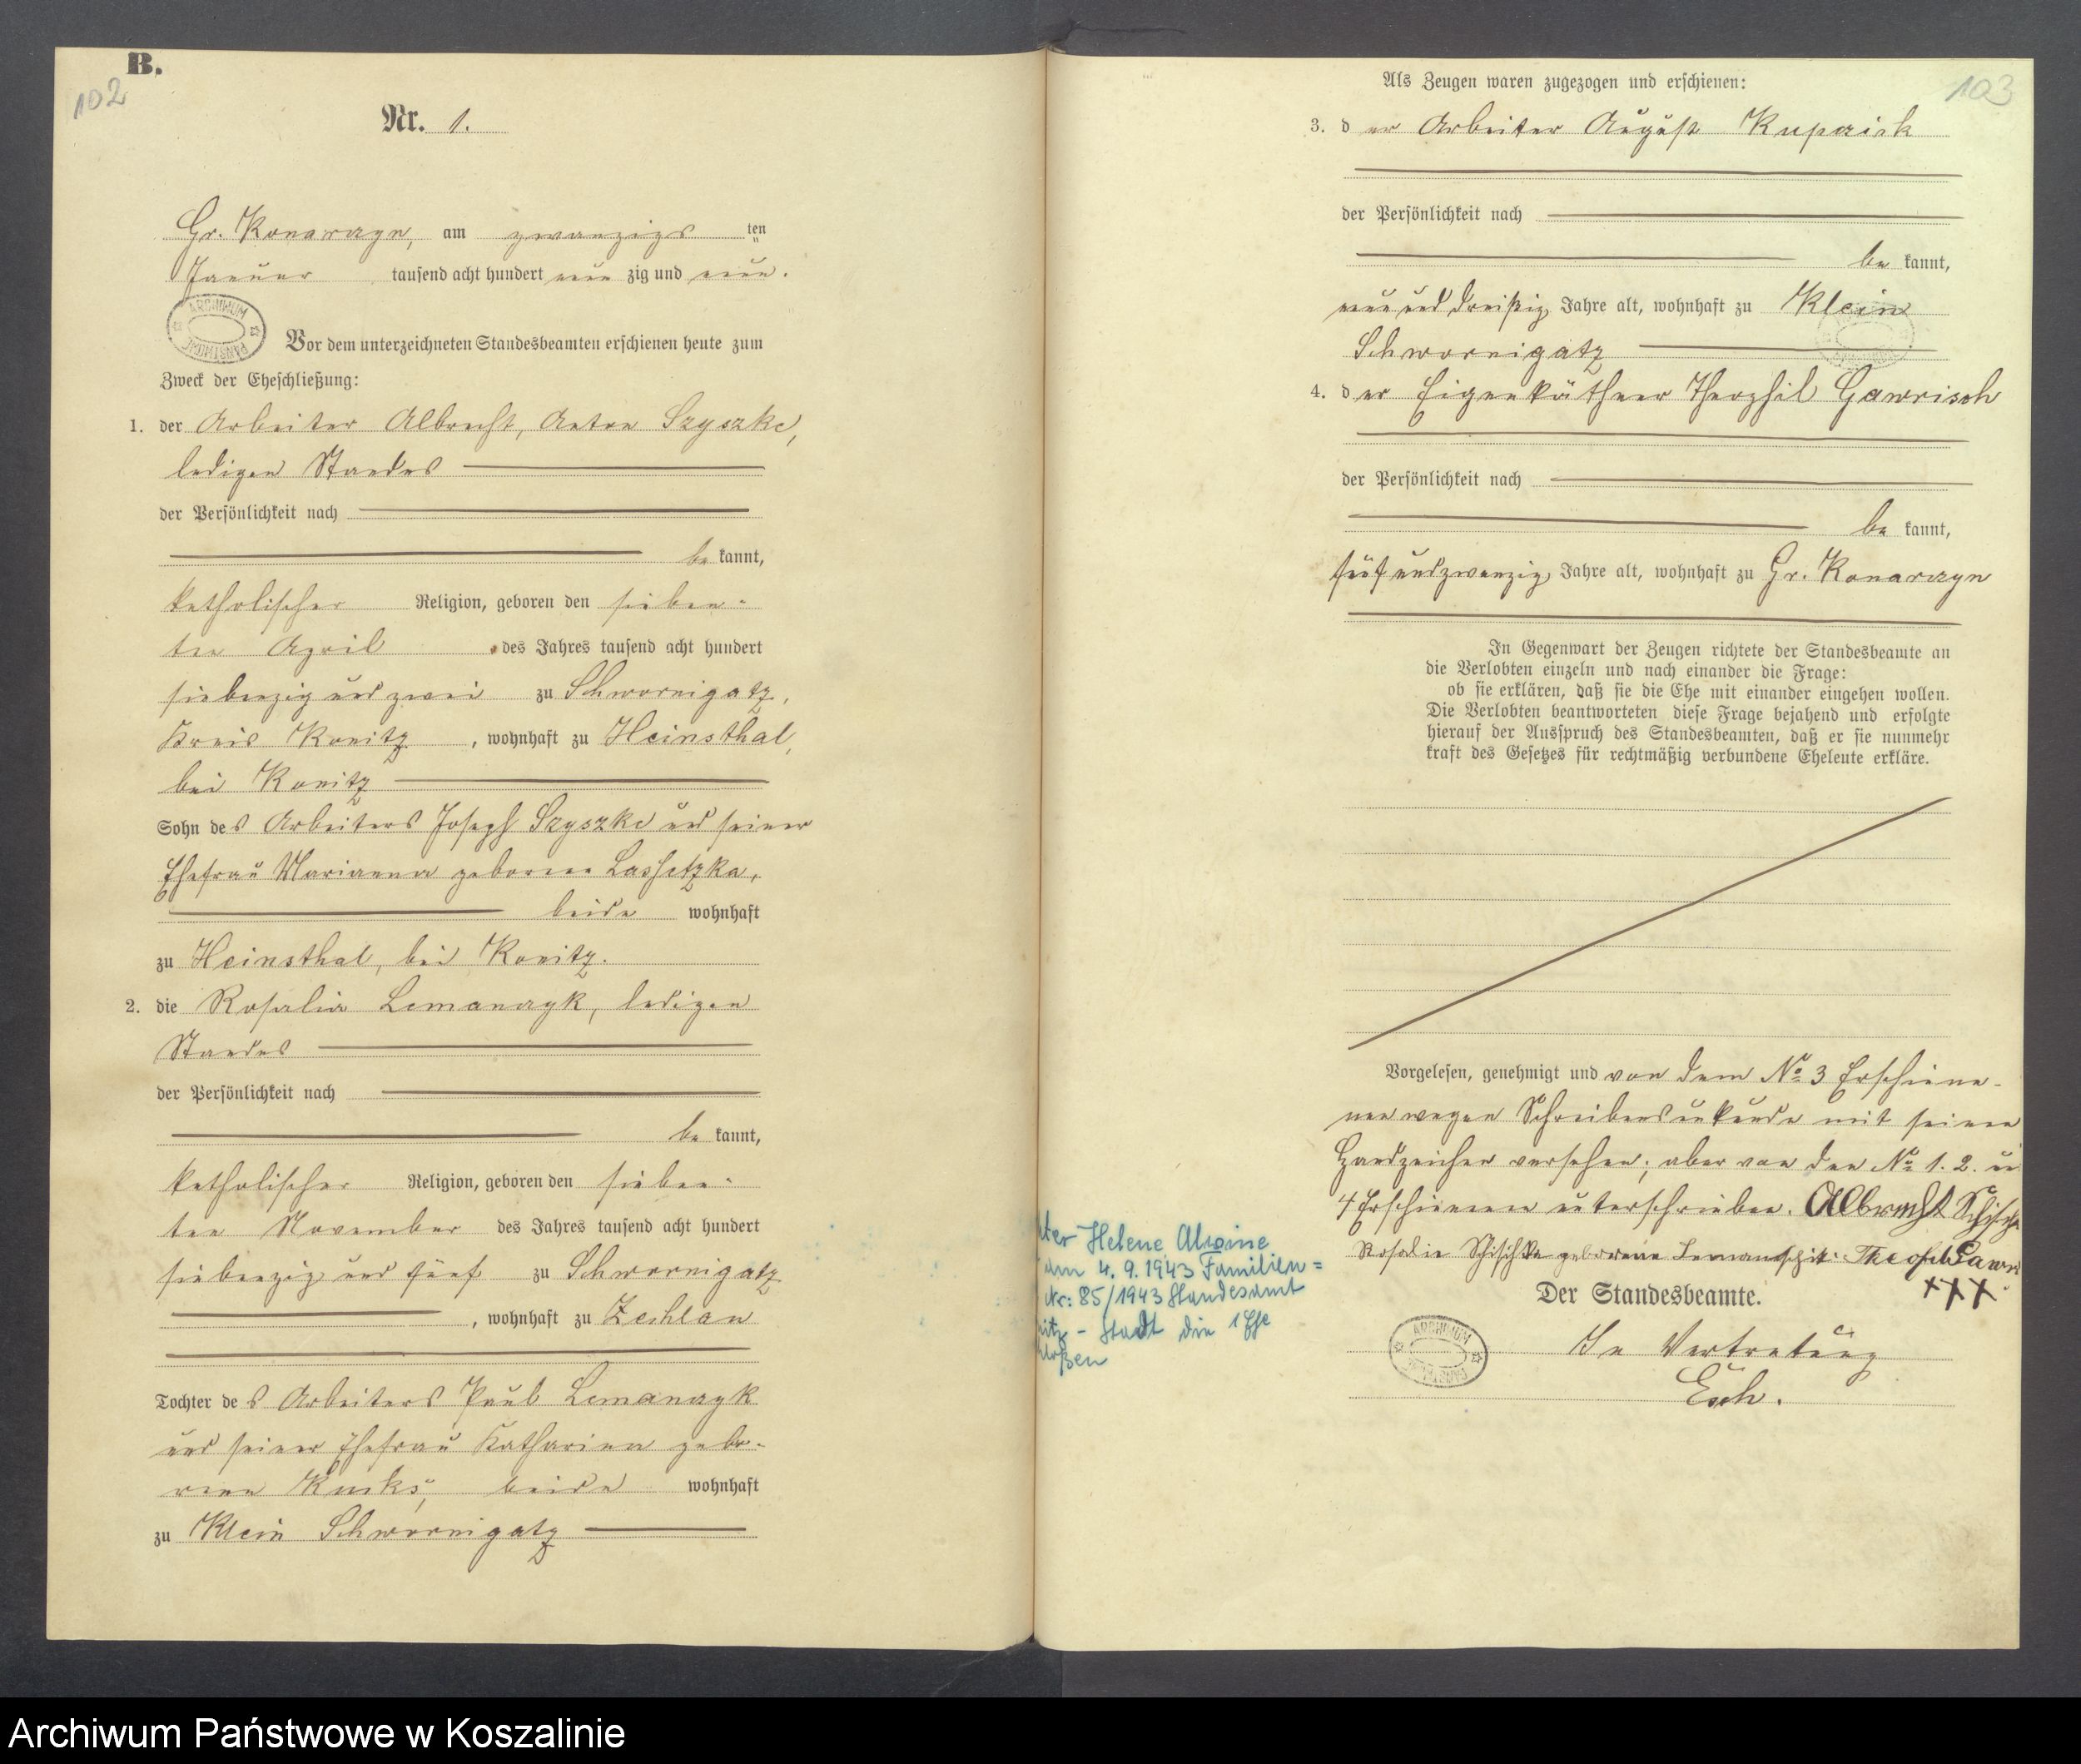 B.
102
Nr. 1.
Gr. Konarczyn, am zwanzigs ten
Januar tausend acht hundert neun zig und neun.
ARCHIWUM PAŃSTWOWE
Vor dem unterzeichneten Standesbeamten erschienen heute zum
Zweck der Eheschließung:
1. der Arbeiter Albrecht, Anton Szyszke,
ledigen Standes
der Persönlichkeit nach
be kannt,
katholischer Religion, geboren den sieben-
ten April des Jahres tausend acht hundert
siebenzig und zwei zu Schwornigatz,
Kreis Konitz, wohnhaft zu Heinsthal,
bei Konitz
Sohn des Arbeiters Joseph Szyszke und seiner
Ehefrau Marianna geborene Lassetzka,
beide wohnhaft
zu Heinsthal, bei Konitz.
2. die Rosalia Lemanczyk, ledigen
Standes
der Persönlichkeit nach
be kannt,
katholischer Religion, geboren den sieben-
ten November des Jahres tausend acht hundert
siebenzig und fünf zu Schwornigatz
, wohnhaft zu Zechlau
Tochter des Arbeiters Paul Lemanczyk
und seiner Ehefrau Katharina gebo-
rene beide wohnhaft
zu Klein Schwornigatz
103
Als Zeugen waren zugezogen und erschienen:
3. der Arbeiter August Kupzick
der Persönlichkeit nach
be kannt,
neun und dreißig Jahre alt, wohnhaft zu Klein
Schwornigatz
4. der Eigenkäthner Theophil Gawrisch
der Persönlichkeit nach
be kannt,
fünf und zwanzig Jahre alt, wohnhaft zu Gr. Konarczyn
In Gegenwart der Zeugen richtete der Standesbeamte an
die Verlobten einzeln und nach einander die Frage:
ob sie erklären, daß sie die Ehe mit einander eingehen wollen.
Die Verlobten beantworteten diese Frage bejahend und erfolgte
hierauf der Ausspruch des Standesbeamten, daß er sie nunmehr
kraft des Gesetzes für rechtmäßig verbundene Eheleute erkläre.
Vorgelesen, genehmigt und von dem No 3 Erschiene-
nen wegen Schreibensunkunde mit seinen
Handzeichen versehen; aber von den No 1. 2. u
4 Erschienenen unterschrieben. Albrecht Schischke
Rosalie Schischke geborene Lemantschik. Theophil Gawri
xxx.
Der Standesbeamte.
In Vertretung
Esch.
ARCHIWUM PAŃSTWOWE
hter Helene Alwine
am 4. 9. 1943 Familien=
Nr: 85/1943 Standesamt
nitz - Stadt die 1 Ehe
hloßen
Archiwum Państwowe w Koszalinie